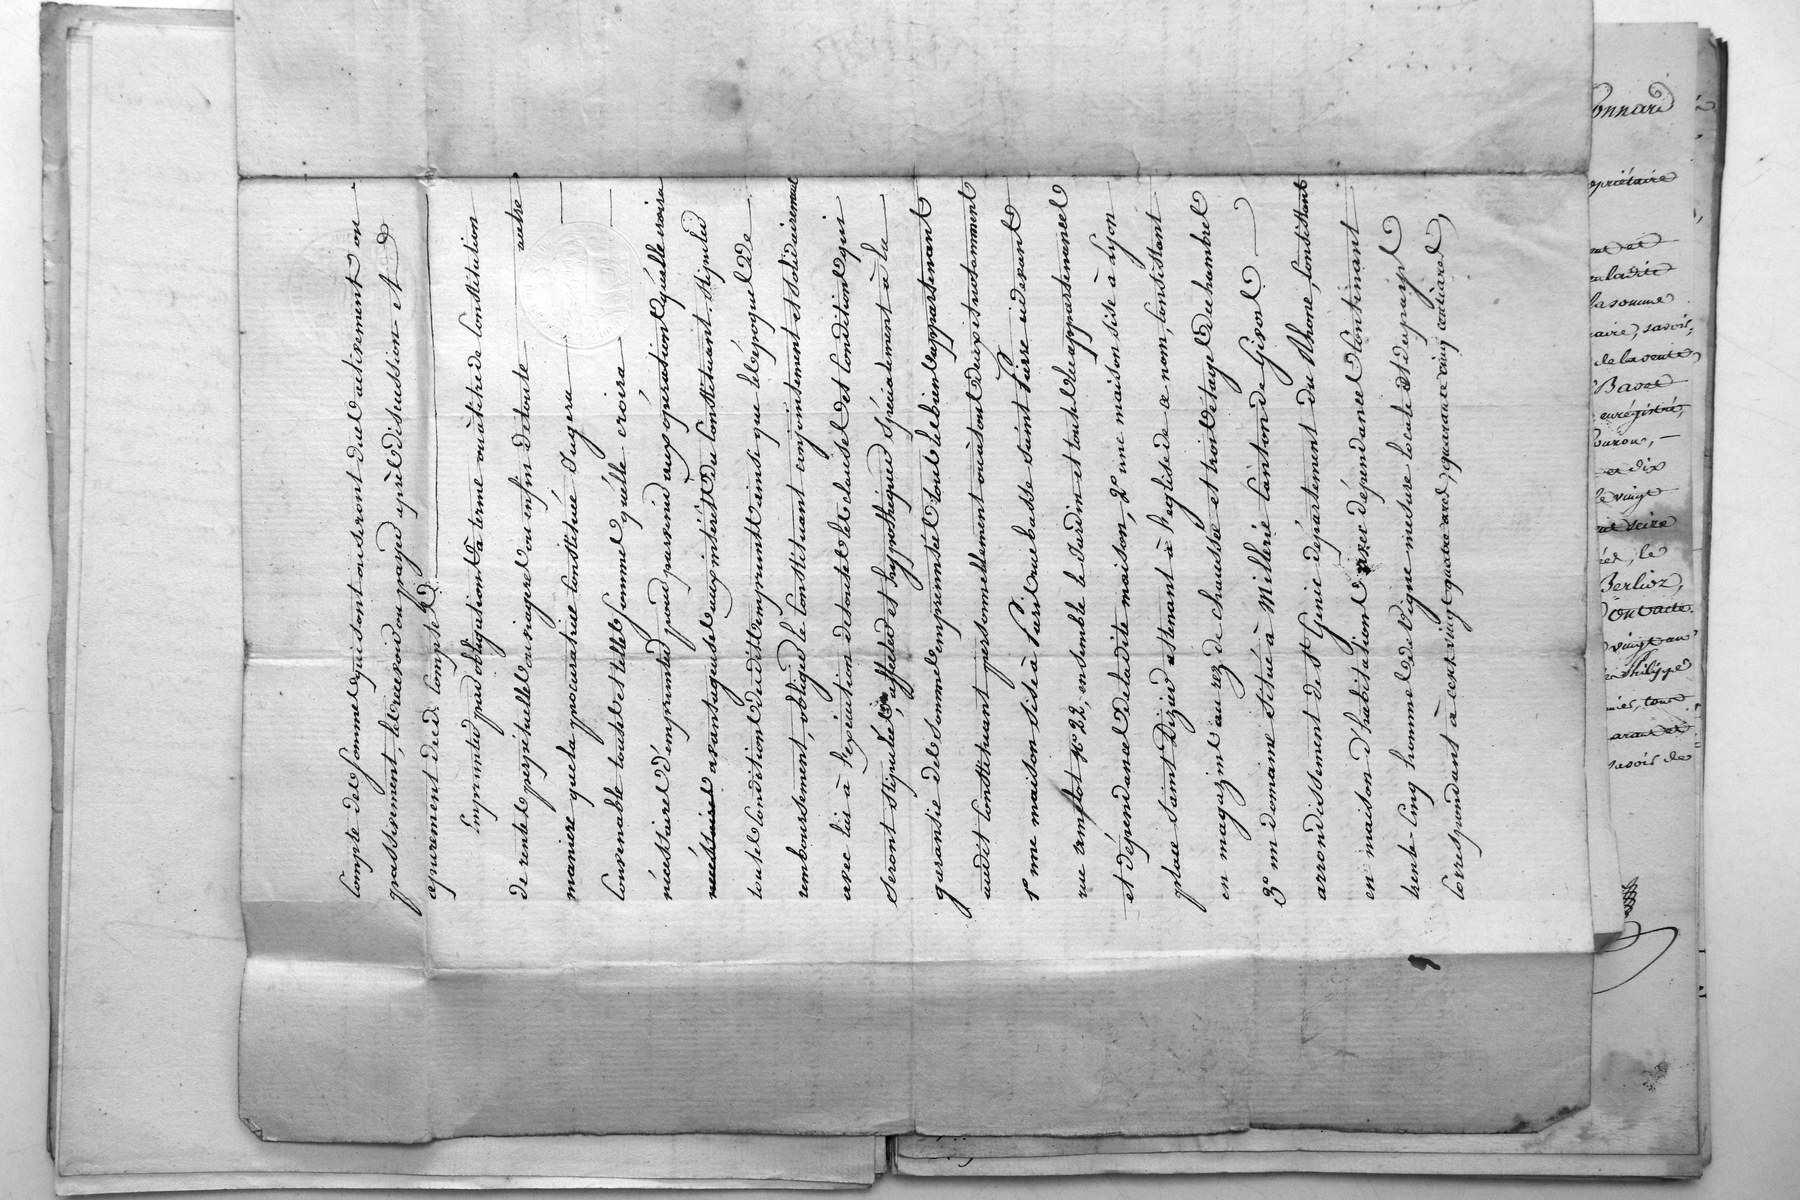 Compte des Sommes qui sont ou seront dues activement ou
passivement, les recevoir ou payer après discussion et
apurement dud. Compte.
Emprunter par obligations à terme ou à titre de Constitution
de rentes perpétuelles ou viageres ou enfin de toute autre
maniere que la procuratrice Constituée Jugera
Convenable toutes et telles Sommes qu'elle croira
nécessaires d'emprunter pour parvenir aux opérations qu'elle croira
avantageuses aux intérêts du Constituant, stipuler
toutes Conditions desdits emprunts ainsi que les époques de
remboursement, obliger le Constituant conjointement et solidairement
avec lui à l'exécution de toutes les clauses et Conditions qui
seront stipulées, affecter et hypothéquer spécialement à la
garantie des Sommes empruntées tous les biens appartenant
audit Constituant personnellement ou à tous deux et notamment
1° une maison sise à Paris rue basse Saint Pierre ci devant
rue N° 22, ensemble le Jardin et toutes les appartenances
et dépendances de ladite maison, 2° une maison sise à Lyon
place Saint Dizier attenant à l'eglise de ce nom, Consistant
en magazins au rez de chaussée et trois étages de chambres
3° un domaine situé à Millerie Canton de Givors
arrondissement de St Genie département du Rhone, Consistant
en maison d'habitation avec dépendances Contenant
trente-Cinq hommes de Vigne mesure locale du pays
Correspondant à cent vingt quatre ares, quarante cinq centiares,
onnard
opriétaire
en ladite
la somme
naire, savoir,
de la vente,
enrégistré,
et dix
le vingt
Berlioz,
vingt un
Philippe
savoir de